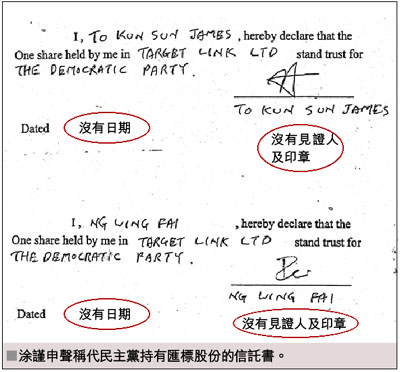 I, TO KUN SUN JAMES, hereby declare that the
One share held by me in TARGET LINK LTD stand trust for
THE DEMOCRATIC PARTY.
TO KUN SUN JAMES
Dated 沒有日期
沒有見證人
及印章
I, NG WING FAI , hereby declare that the
One share held by me in TARGET LINK LTD stand trust for
THE DEMOCRATIC PARTY.
NG WING FAI
Dated 沒有日期
沒有見證人及印章
■涂謹申聲稱代民主黨持有匯標股份的信託書。